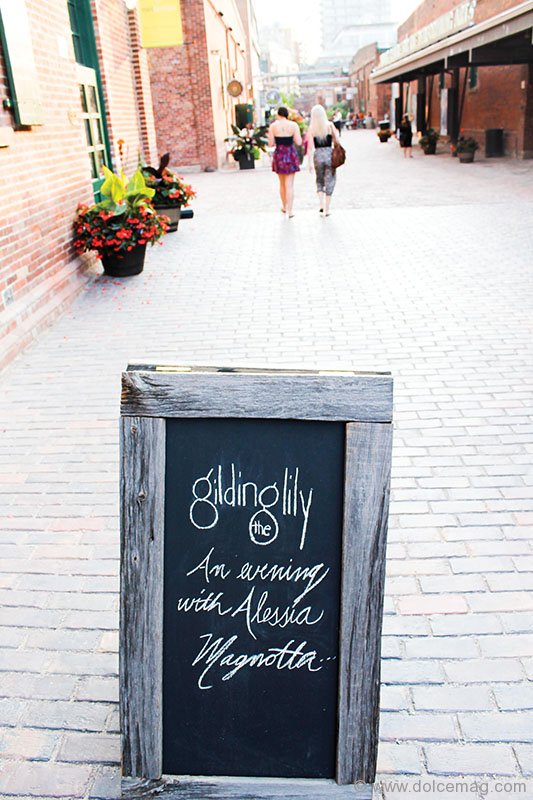 gilding the lily
An evening
with Alessia
Magnotta...
© www.dolcemag.com